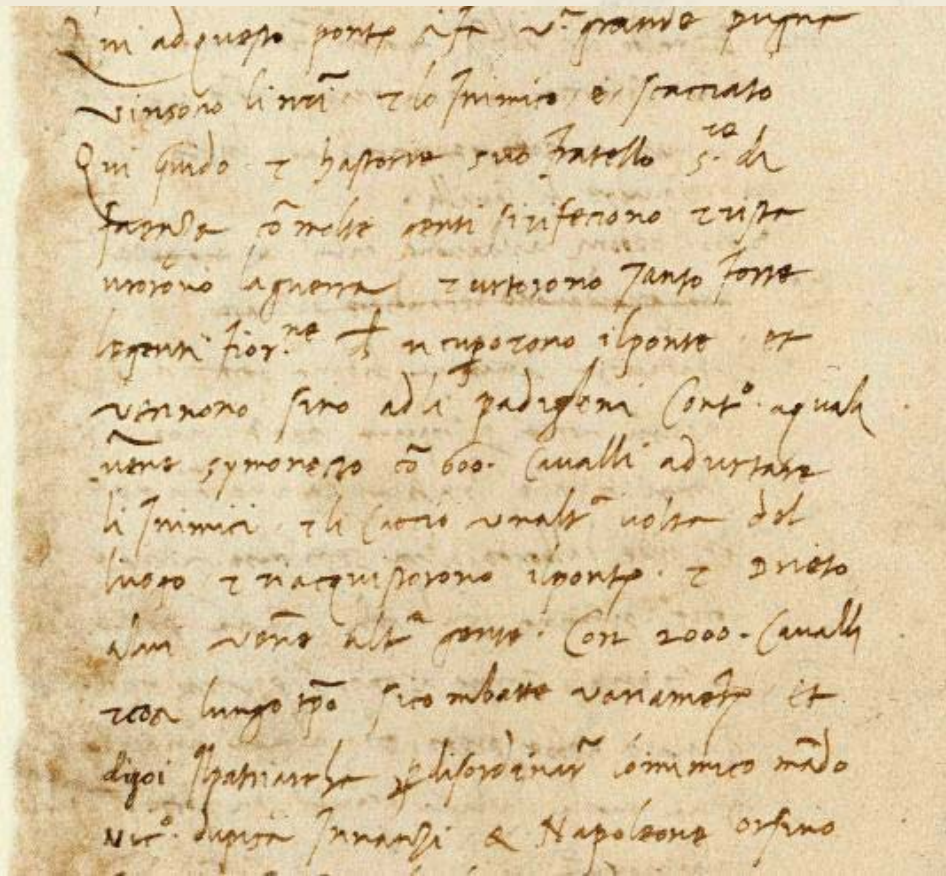 Qui ad questo ponte si fa v.ª grande pugna
vinsono li nrī et lo Inimico è scacciato
Qui guido et hastorre suo fratello s.re da
faenza cō molte genti si rifeciono et rista
urorōno la guerra et urtorono Tanto forte
le genti fior.ne ch ricuporono il ponte et
vennono sino adli padiglioni Cont.º a quali
vēne symonetto cō 600. Cavalli ad urtare
li Inimici et li Cacciò un altª volta del
luogo et racquistorono il ponte. et Drieto
a lui vēne altª gente. Con 2000. Cavalli
et cosi lungo tpō si combatte variamēte et
di poi Il patriarcha p disordinar lo inimico mādo
Nicº. da pisa Innanzi & Napoleone orsino